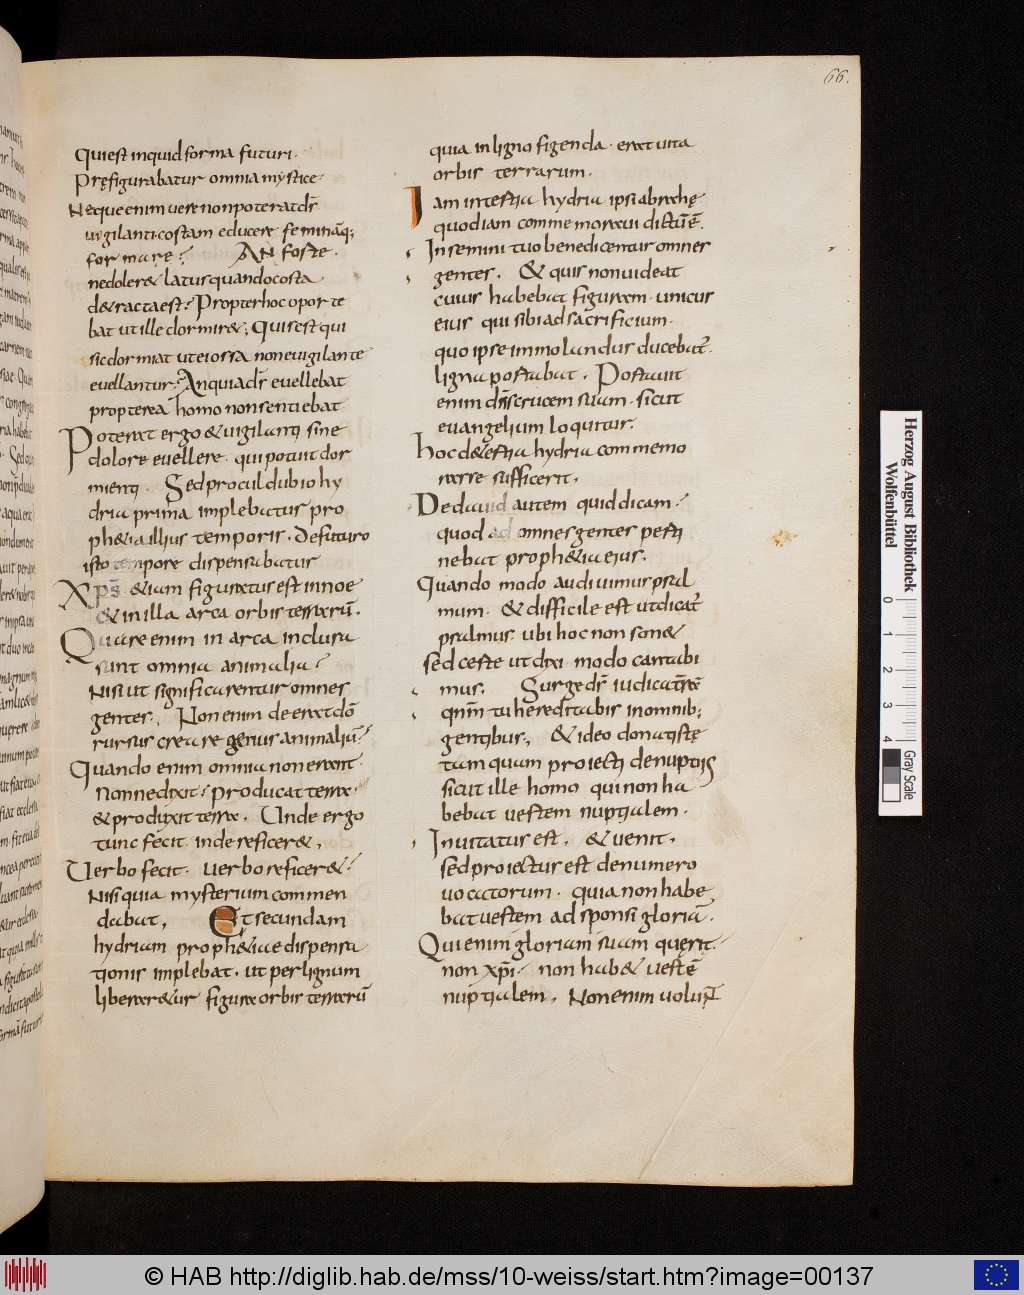 66.
Qui est inquid forma futuri.
Pręfigurabatur omnia mystice.
Neque enim uere non poterat dr̄
uigilanti costam educere feminąq;
formare? An forte.
ne dolere& latus quando costa
d&racta est? Propter hoc oporte
bat ut ille dormir&; Quis est qui
sic dormiat ut ei ossa non euigilante
euellantur? An quia dr̄ euellebat
propterea homo non sentiebat
Poterat ergo & uigilanti sine
dolore euellere. qui potuit dor
mienti. Sed procul dubio hy
dria prima implebatur pro
ph&ia illius temporis. De futuro
isto tempore dispensabatur
Xp̄s &iam figuratus est in noe
& in illa arca orbis terrarū.
Quare enim in arca inclusa
sunt omnia animalia?
Nisi ut significarentur omnes
gentes. Non enim deerat dō
rursus creare genus animaliū?
Quando enim omnia non erant.
Nonne dixit? producat terra.
& prodixit terra. Unde ergo
tunc fecit. inde reficer&.
Uerbo fecit. uerbo reficer&?
Nisi quia mysterium commen
dabat. Et secundam
hydriam proph&iae dispensa
tionis implebat. ut per lignum
liberar&ur figura orbis terrarū
quia in ligno figenda. erat uita
orbis terrarum.
Iam in tertia hydria ipsi abrahę
quod iam commemoraui dictū ē.
In semini tuo benedicentur omnes
gentes. & quis non uideat
cuius habebat figuram. unicus
eius qui sibi ad sacrificium.
quo ipse immolandus ducebat̄.
ligna portabat. Portauit
enim dn̄s crucem suam. sicut
euangelium loquitur.
hoc de tertia hydria commemo
rasse suffecerit.
De dauid autem quid dicam?
quod ad omnes gentes perti
nebat proph&ia eius.
Quando modo audiuimus psal
mum. & difficile est ut dicat̄
psalmus. ubi hoc non son&
sed certe ut dixi. modo cantabi
mus. Surge dr̄ iudica terrā
qm̄ tu hereditabis in omnib;
gentibus. & ideo donatistę
tamquam proiecti de nuptiis
sicut ille homo qui non ha
bebat uestem nuptialem.
Inuitatus est. & uenit.
sed proiectus est de numero
uocatorum. quia non habe
bat uestem ad sponsi gloriā.
Qui enim gloriam suam querit.
non xp̄i. non hab& uestē
nuptialem. Non enim uolunt
Herzog August Bibliothek
Wolfenbüttel
0 1 2 3 4
Gray Scale
© HAB http://diglib.hab.de/mss/10-weiss/start.htm?image=00137